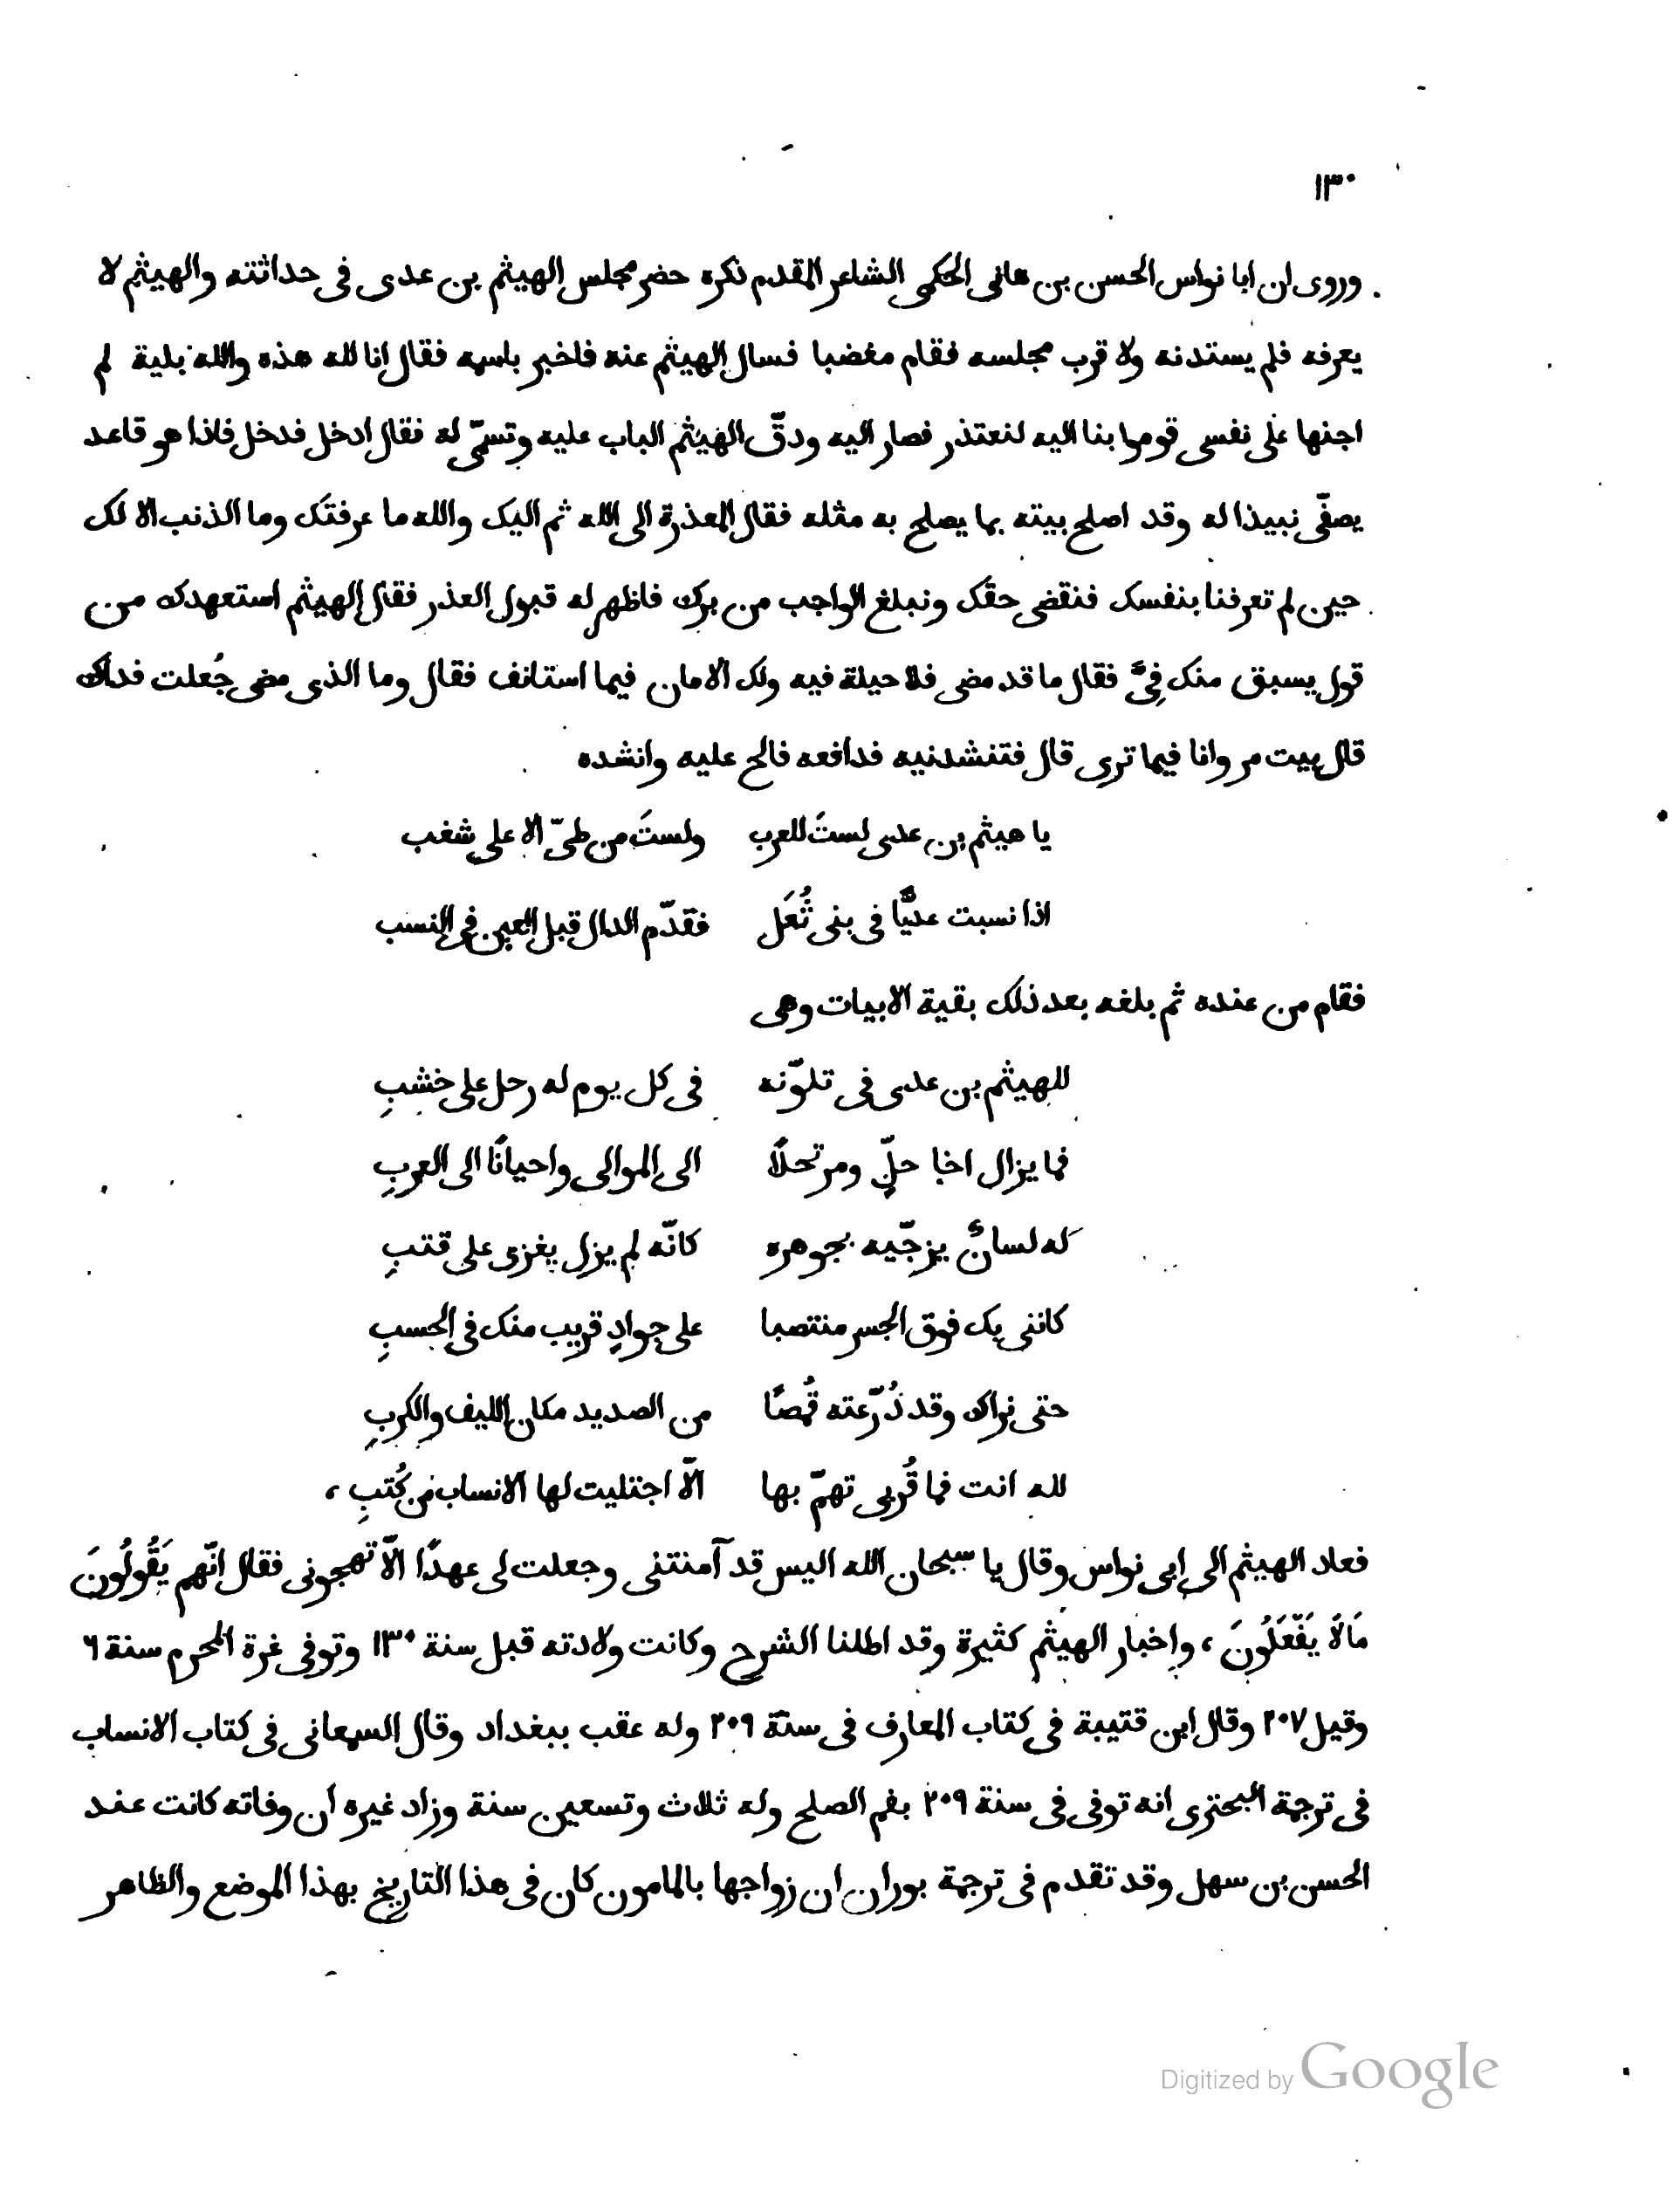 ١٣٠
وروى ان ابا نواس الحسن بن هانى الحكمى الشاعر المقدم ذكره حضر مجلس الهيثم بن عدى فى حداثته والهيثم لا
يعرفه فلم يستدنه ولا قرب مجلسه فقام مغضبا فسال الهيثم عنه فاخبر باسمه فقال انا لله هذه والله بلية لم
اجنها على نفسى قوموا بنا اليه لنعتذر فصار اليه ودقّ الهيثم الباب عليه وتسمّى له فقال ادخل فدخل فاذا هو قاعد
يصفّى نبيذا له وقد اصلح بيته بما يصلح به مثله فقال المعذرة الى الله ثم اليك والله ما عرفتك وما الذنب الا لك
حين لم تعرفنا بنفسك فنقضى حقك ونبلغ الواجب من برك فاظهر له قبول العذر فقال الهيثم استعهدك من
قول يسبق منك فِىَّ فقال ما قد مضى فلا حيلة فيه ولك الامان فيما استانف فقال وما الذى مضى جُعلت فداك
قال بيت مر وانا فيما ترى قال فتنشدنيه فدافعه فالح عليه وانشده
يا هيثم بن عدى لستَ للعرب ولستَ من طىّ الا على شغب
اذا نسبت عديًّا فى بنى ثُعَل فقدّم الدال قبل العين فى النسب
فقام من عنده ثم بلغه بعد ذلك بقية الابيات وهى
للهيثم بن عدى فى تلوّنه فى كل يوم له رحل على خشبِ
فما يزال اخا حلّ ومرتحلًا الى الموالى واحيانًا الى العربِ
له لسانٌ يزجّيه بجوهره كانّه لم يزل يغزى على قتبِ
كاننى بك فوق الجسر منتصبا على جوادٍ قريب منك فى الحسبِ
حتى نراك وقد دُرّعته قُمصًا من الصديد مكان الليف والكربِ
لله انت فما قُربى تهمّ بها الّا اجتليت لها الانساب من كُتبِ ،
فعاد الهيثم الى ابى نواس وقال يا سبحان الله اليس قد آمنتنى وجعلت لى عهدًا الّا تهجونى فقال انّهم يَقُولُونَ
مَالَا يَفْعَلُونَ ، واخبار الهيثم كثيرة وقد اطلنا الشرح وكانت ولادته قبل سنة ١٣٠ وتوفى غرة المحرم سنة ٦
وقيل ٢٠٧ وقال ابن قتيبة فى كتاب المعارف فى سنة ٢٠٩ وله عقب ببغداد وقال السمعانى فى كتاب الانساب
فى ترجمة البحترى انه توفى فى سنة ٢٠٩ بفم الصلح وله ثلاث وتسعين سنة وزاد غيره ان وفاته كانت عند
الحسن بن سهل وقد تقدم فى ترجمة بوران ان زواجها بالمامون كان فى هذا التاريخ بهذا الموضع والظاهر
Digitized by Google